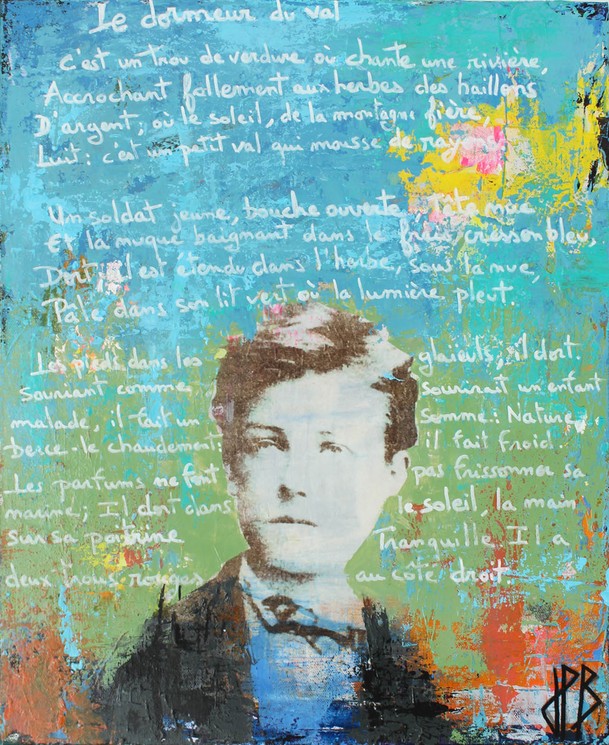 Le dormeur du val
C'est un trou de verdure où chante une rivière,
Accrochant follement aux herbes des haillons
D'argent; où le soleil, de la montagne fière,
Luit: c'est un petit val qui mousse de rayons.
Un soldat jeune, bouche ouverte, tête nue
Et la nuque baignant dans le frais cresson bleu,
Dort; il est étendu dans l'herbe, sous la nue,
Pâle dans son lit vert où la lumière pleut.
Les pieds dans les glaïeuls, il dort.
Souriant comme sourirait un enfant
malade, il fait un somme: Nature,
berce-le chaudement il fait froid.
Les parfums ne font pas frissonner sa
narine; Il dort dans le soleil, la main
sur sa poitrine Tranquille. Il a
deux trous rouges au côté droit